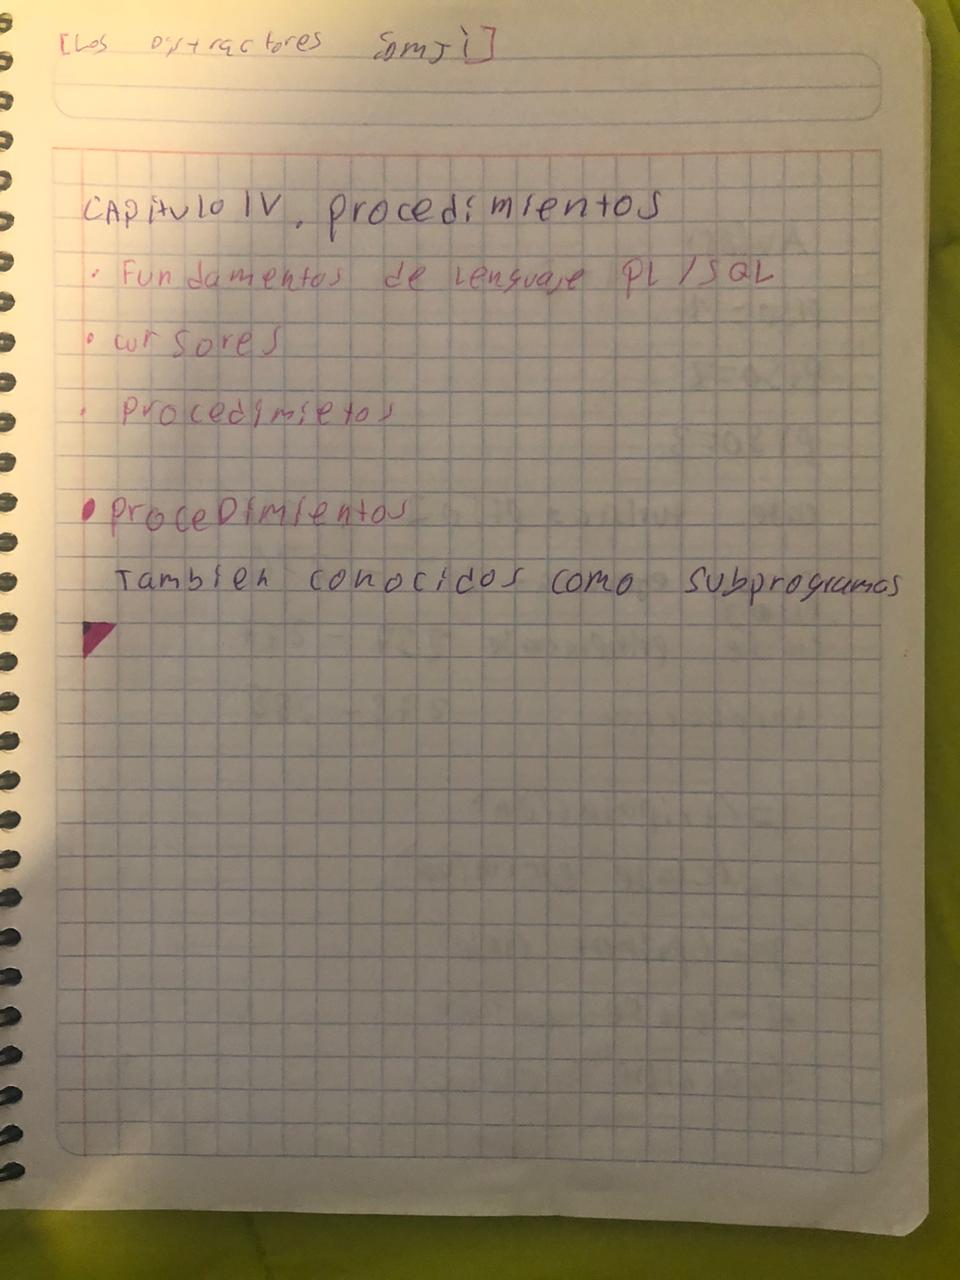 [Los distractores
Capitulo IV. procedimientos
• Fundamentos de lenguaje PL/SQL
• cursores
• procedimietos
• procedimientos
Tambien conocidos como subprogramas